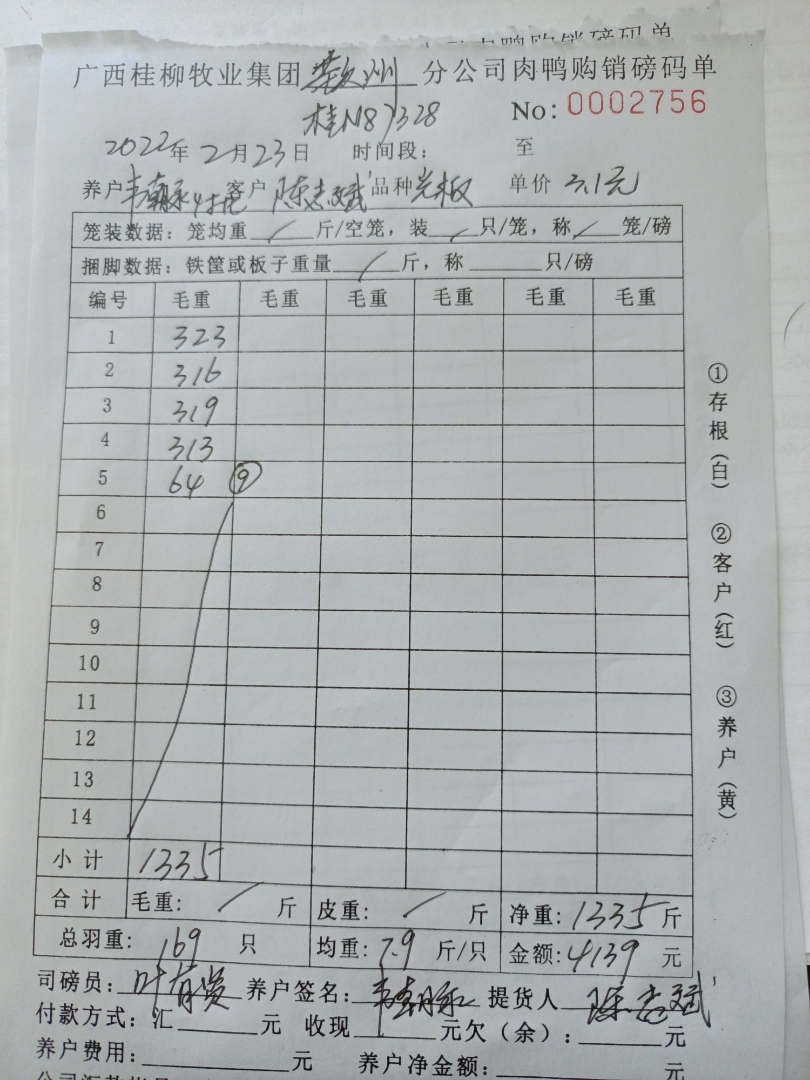 肉鸭购销磅码单
广西桂柳牧业集团 钦州 分公司肉鸭购销磅码单
桂N87328 No: 0002756
2022年 2月23日 时间段: 至
养户 客户 陈志斌 品种 光板 单价 3.1元
笼装数据: 笼均重 / 斤/空笼, 装 / 只/笼, 称 / 笼/磅
捆脚数据: 铁筐或板子重量 / 斤, 称 只/磅
编号 毛重 毛重 毛重 毛重 毛重 毛重
1 323
2 316
3 319
4 313
5 64 ⑨
6
7
8
9
10
11
12
13
14
小计 1335
合计 毛重: / 斤 皮重: / 斤 净重: 1335 斤
总羽重: 169 只 均重: 7.9 斤/只 金额: 4139 元
司磅员: 叶有贵 养户签名: 提货人 陈志斌
付款方式: 汇 元 收现 元欠(余): 元
养户费用: 元 养户净金额: 元
①存根(白) ②客户(红) ③养户(黄)